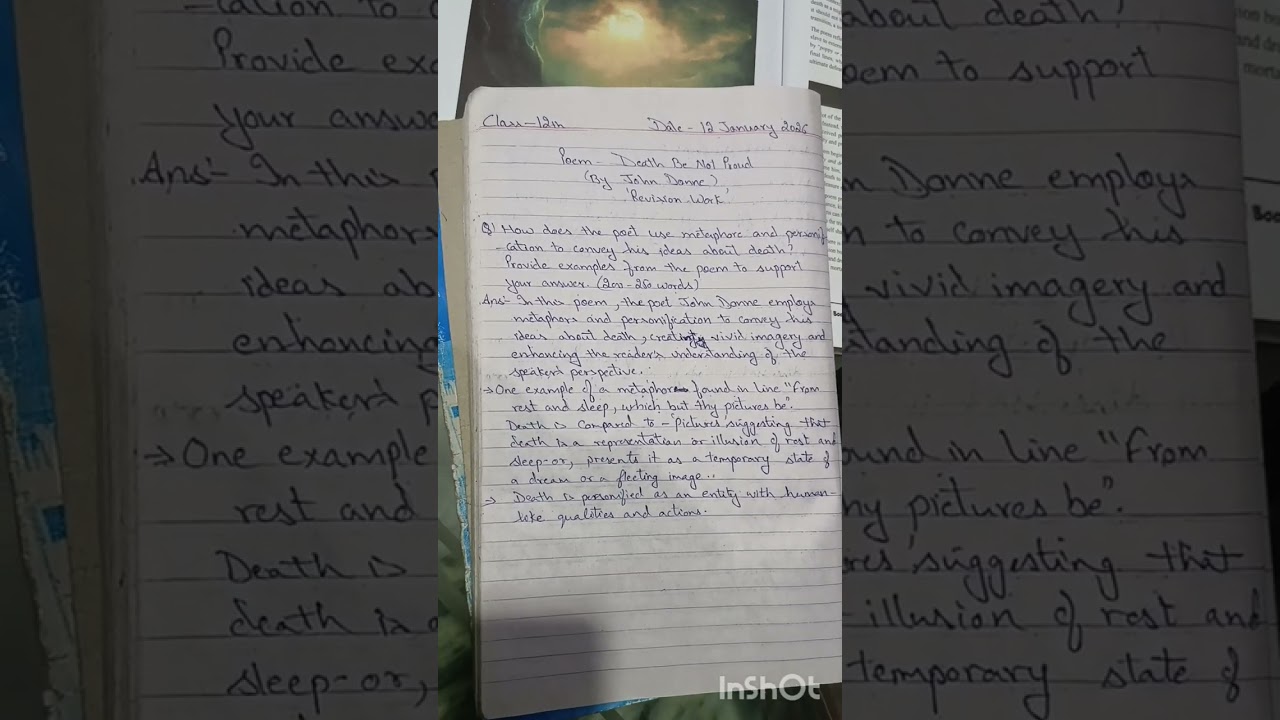 Class-12th Date - 12 January 2026
Poem - Death Be Not Proud
(By John Donne)
'Revision Work'
Q1 How does the poet use metaphore and personifi
-cation to convey his ideas about death?
Provide examples from the poem to support
your answer. (200-250 words)
Ans- In this poem, the poet John Donne employs
metaphors and personification to convey his
ideas about death, creating vivid imagery and
enhancing the reader's understanding of the
speaker's perspective.
→ One example of a metaphor found in line "From
rest and sleep, which but thy pictures be".
Death is compared to - 'Pictures' suggesting that
death is a representation or illusion of rest and
sleep-or, presents it as a temporary state of
a dream or a fleeting image..
→ Death is personified as an entity with human-
like qualities and actions.
InShOt